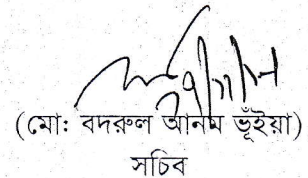 (মোঃ বদরুল আনম ভূঁইয়া)
সচিব